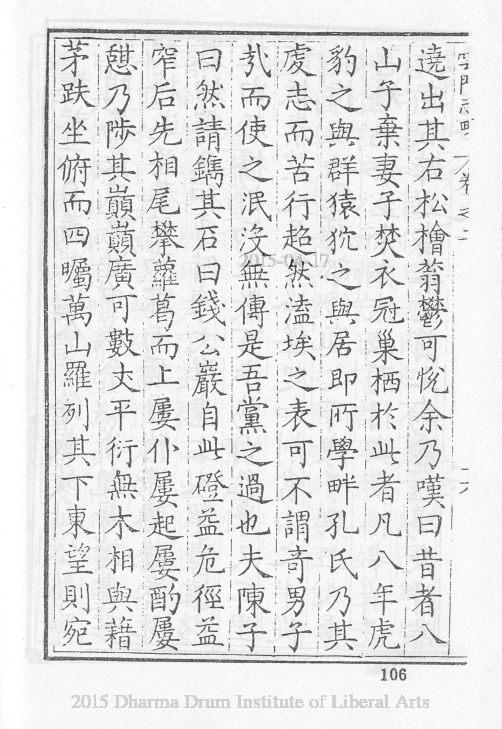 遶出其右松檜蓊鬱可悅余乃嘆曰昔者八
山子棄妻子焚衣冠巢栖於此者凡八年虎
豹之與群猿狖之與居即所學畔孔氏乃其
虔志而苦行超然溘埃之表可不謂竒男子
㢤而使之泯沒無傳是吾黨之過也夫陳子
曰然請鐫其石曰錢公巖自此磴益危徑益
窄后先相尾攀蘿葛而上屢仆屢起屢酌屢
憇乃陟其巔巔廣可數丈平衍無木相與藉
茅趺坐俯而四矚萬山羅列其下東望則宛
106
2015-04-17
2015 Dharma Drum Institute of Liberal Arts